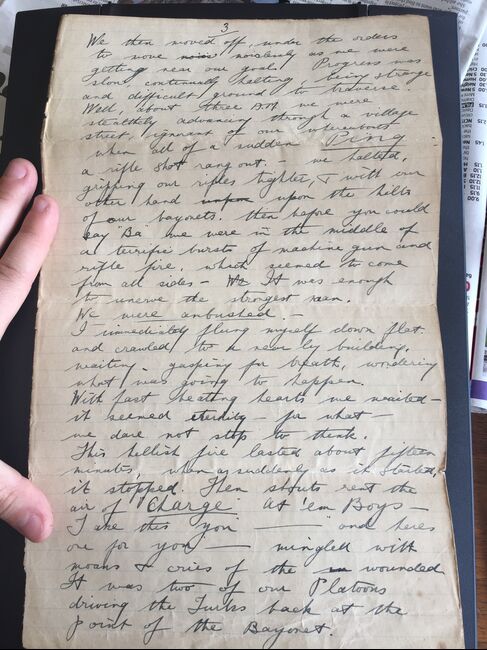 3
We then moved off, under the orders
to move noiselessly as we were
getting near our goal. Progress was
slow continually halting being strange
and difficult ground to traverse.
Well, about three A.M. we were
stealthily advancing through a village
street, ignorant of our whereabouts
when all of a sudden Ping
a rifle shot rang out. - we halted,
gripping our rifles tighter, & with our
other hand upon the hilts
of our bayonets, then before you could
say "Ba" we were in the middle of
a terrific bursts of machine gun and
rifle fire, which seemed to come
from all sides - It was enough
to unnerve the strongest man.
We were ambushed. -
I immediately flung myself down flat
and crawled to a near by building,
waiting - gasping for breath, wondering
what was going to happen.
With fast beating hearts we waited -
it seemed eternity - for what -
we dare not stop to think.
This hellish fire lasted about fifteen
minutes, when as suddenly as it started,
it stopped. Then shouts rent the
air of "Charge" At 'em Boys -
Take this you ——— and heres
one for you —— mingled with
moans & cries of the wounded
It was two of our Platoons
driving the Turks back at the
point of the Bayonet.